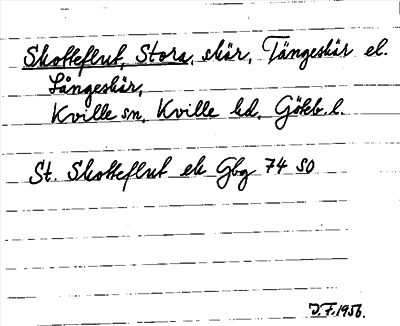 Skotteflut, Stora, skär, Tångeskär el.
Långeskär,
Kville sn, Kville hd, Göteb. l.
St. Skotteflut ek Gbg 74 SO
J.F. 1956.